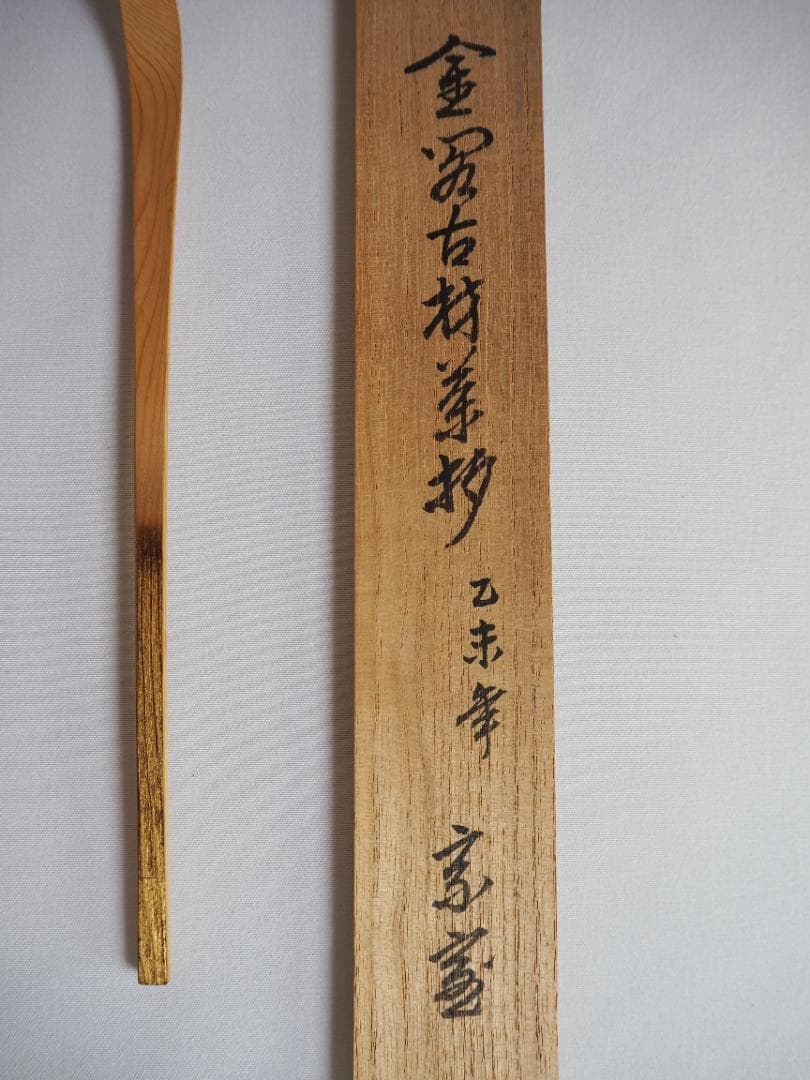 金閣古材茶杓
乙未年